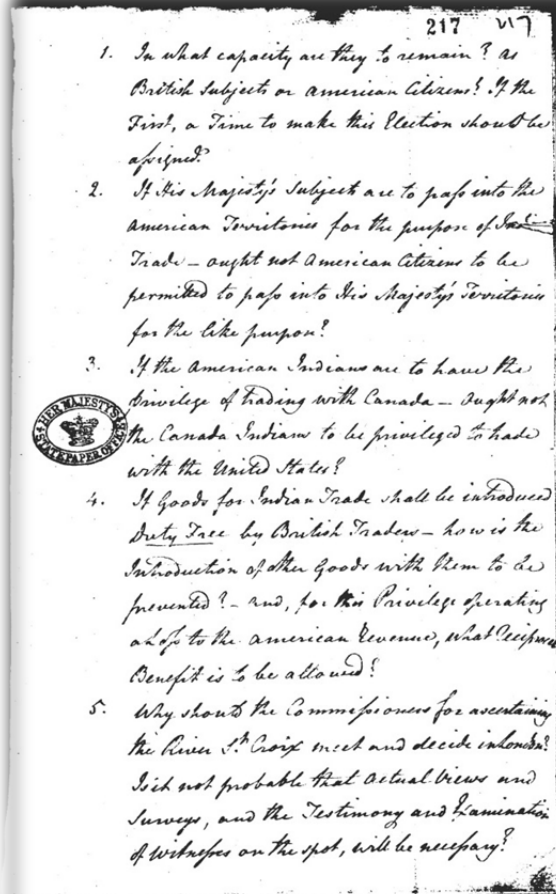 217 217
1. In what capacity are they to remain? as
British Subjects or American Citizens? If the
First, a Time to make this Election should be
assigned?
2. If His Majesty's Subjects are to pass into the
American Territories for the purpose of Indian
Trade – ought not American Citizens to be
permitted to pass into His Majesty's Territories
for the like purpose?
3. If the American Indians are to have the
Privilege of trading with Canada – Ought not
the Canada Indians to be privileged to trade
with the United States?
4. If Goods for Indian Trade shall be introduced
Duty Free by British Traders – how is the
Introduction of other Goods with them to be
prevented? – and, for this Privilege operating
a Loss to the American Revenue, what reciprocal
Benefit is to be allowed?
5. Why should the Commissioners for ascertaining
the River St. Croix meet and decide in London?
Is it not probable that actual Views and
Surveys, and the Testimony and Examination
of Witnesses on the spot, will be necessary?
HER MAJESTY'S
STATE PAPER OFFICE